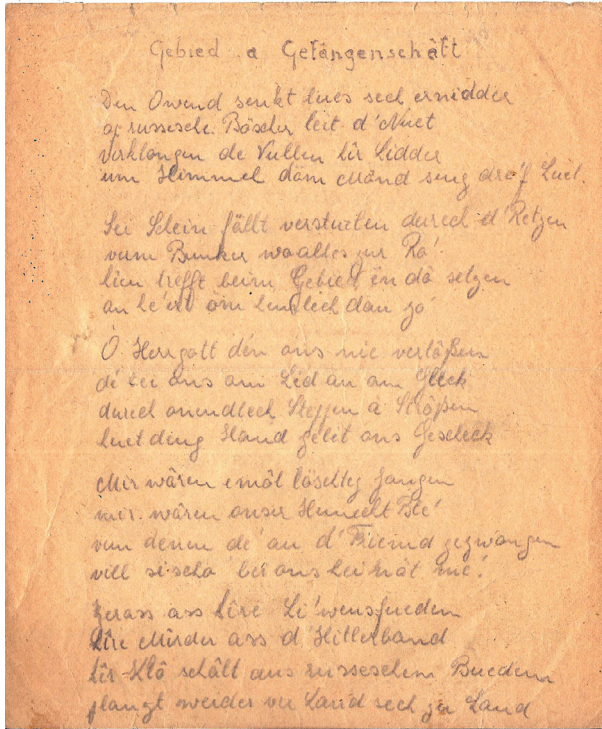 Gebied a Gefängenschâft
Den Owend senkt lues sech ernidder
op russesche Bëscher leit d'Nuet
verklongen de Vullen hir Lidder
um Himmel dâm Mând seng drop
Säi Schein fällt verstuelen duerch d'Retzen
vum Bunker wo alles zur Ro'
hien trefft beim Gebied en dâ setzen
an he'ert öm dan zo'
O Herrgott den ons nie verlôßen
de bei ons am Léd an am Gléck
duerch onendlech Steppen a Strôßen
huet deng Hand geleit ons Geschéck
Mir wâren emôl löschteg Jongen
mir wâren onser Hemecht
vun denen de' an d'Friemd gezwongen
vill si scho' bei ons hei nât mé!
Zerass ass hire Li'wensfuedem
hire Mierder ass d'Hitlerband
hir Klô schâlt aus russeschem Buedem
plangt weider vu Land sech zu Land